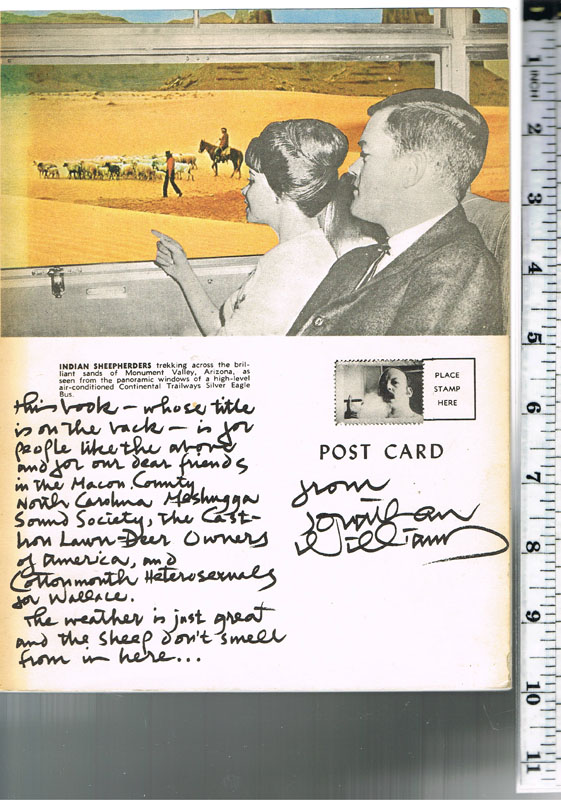 INDIAN SHEEPHERDERS trekking across the bril-
liant sands of Monument Valley, Arizona, as
seen from the panoramic windows of a high-level
air-conditioned Continental Trailways Silver Eagle
Bus.
this book — whose title
is on the back — is for
people like the above
and for our dear friends
in the Macon County
North Carolina Meshugga
Sound Society, the Cast-
Iron Lawn-Deer Owners
of America, and
Cottonmouth Heterosexuals
for Wallace.
The weather is just great
and the sheep don't smell
from in here...
PLACE
STAMP
HERE
POST CARD
from
Jonathan
Williams
1 INCH
2
3
4
5
6
7
8
9
10
11